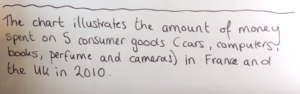 The chart illustrates the amount of money
spent on 5 consumer goods (cars, computers,
books, perfume and cameras) in France and
the UK in 2010.